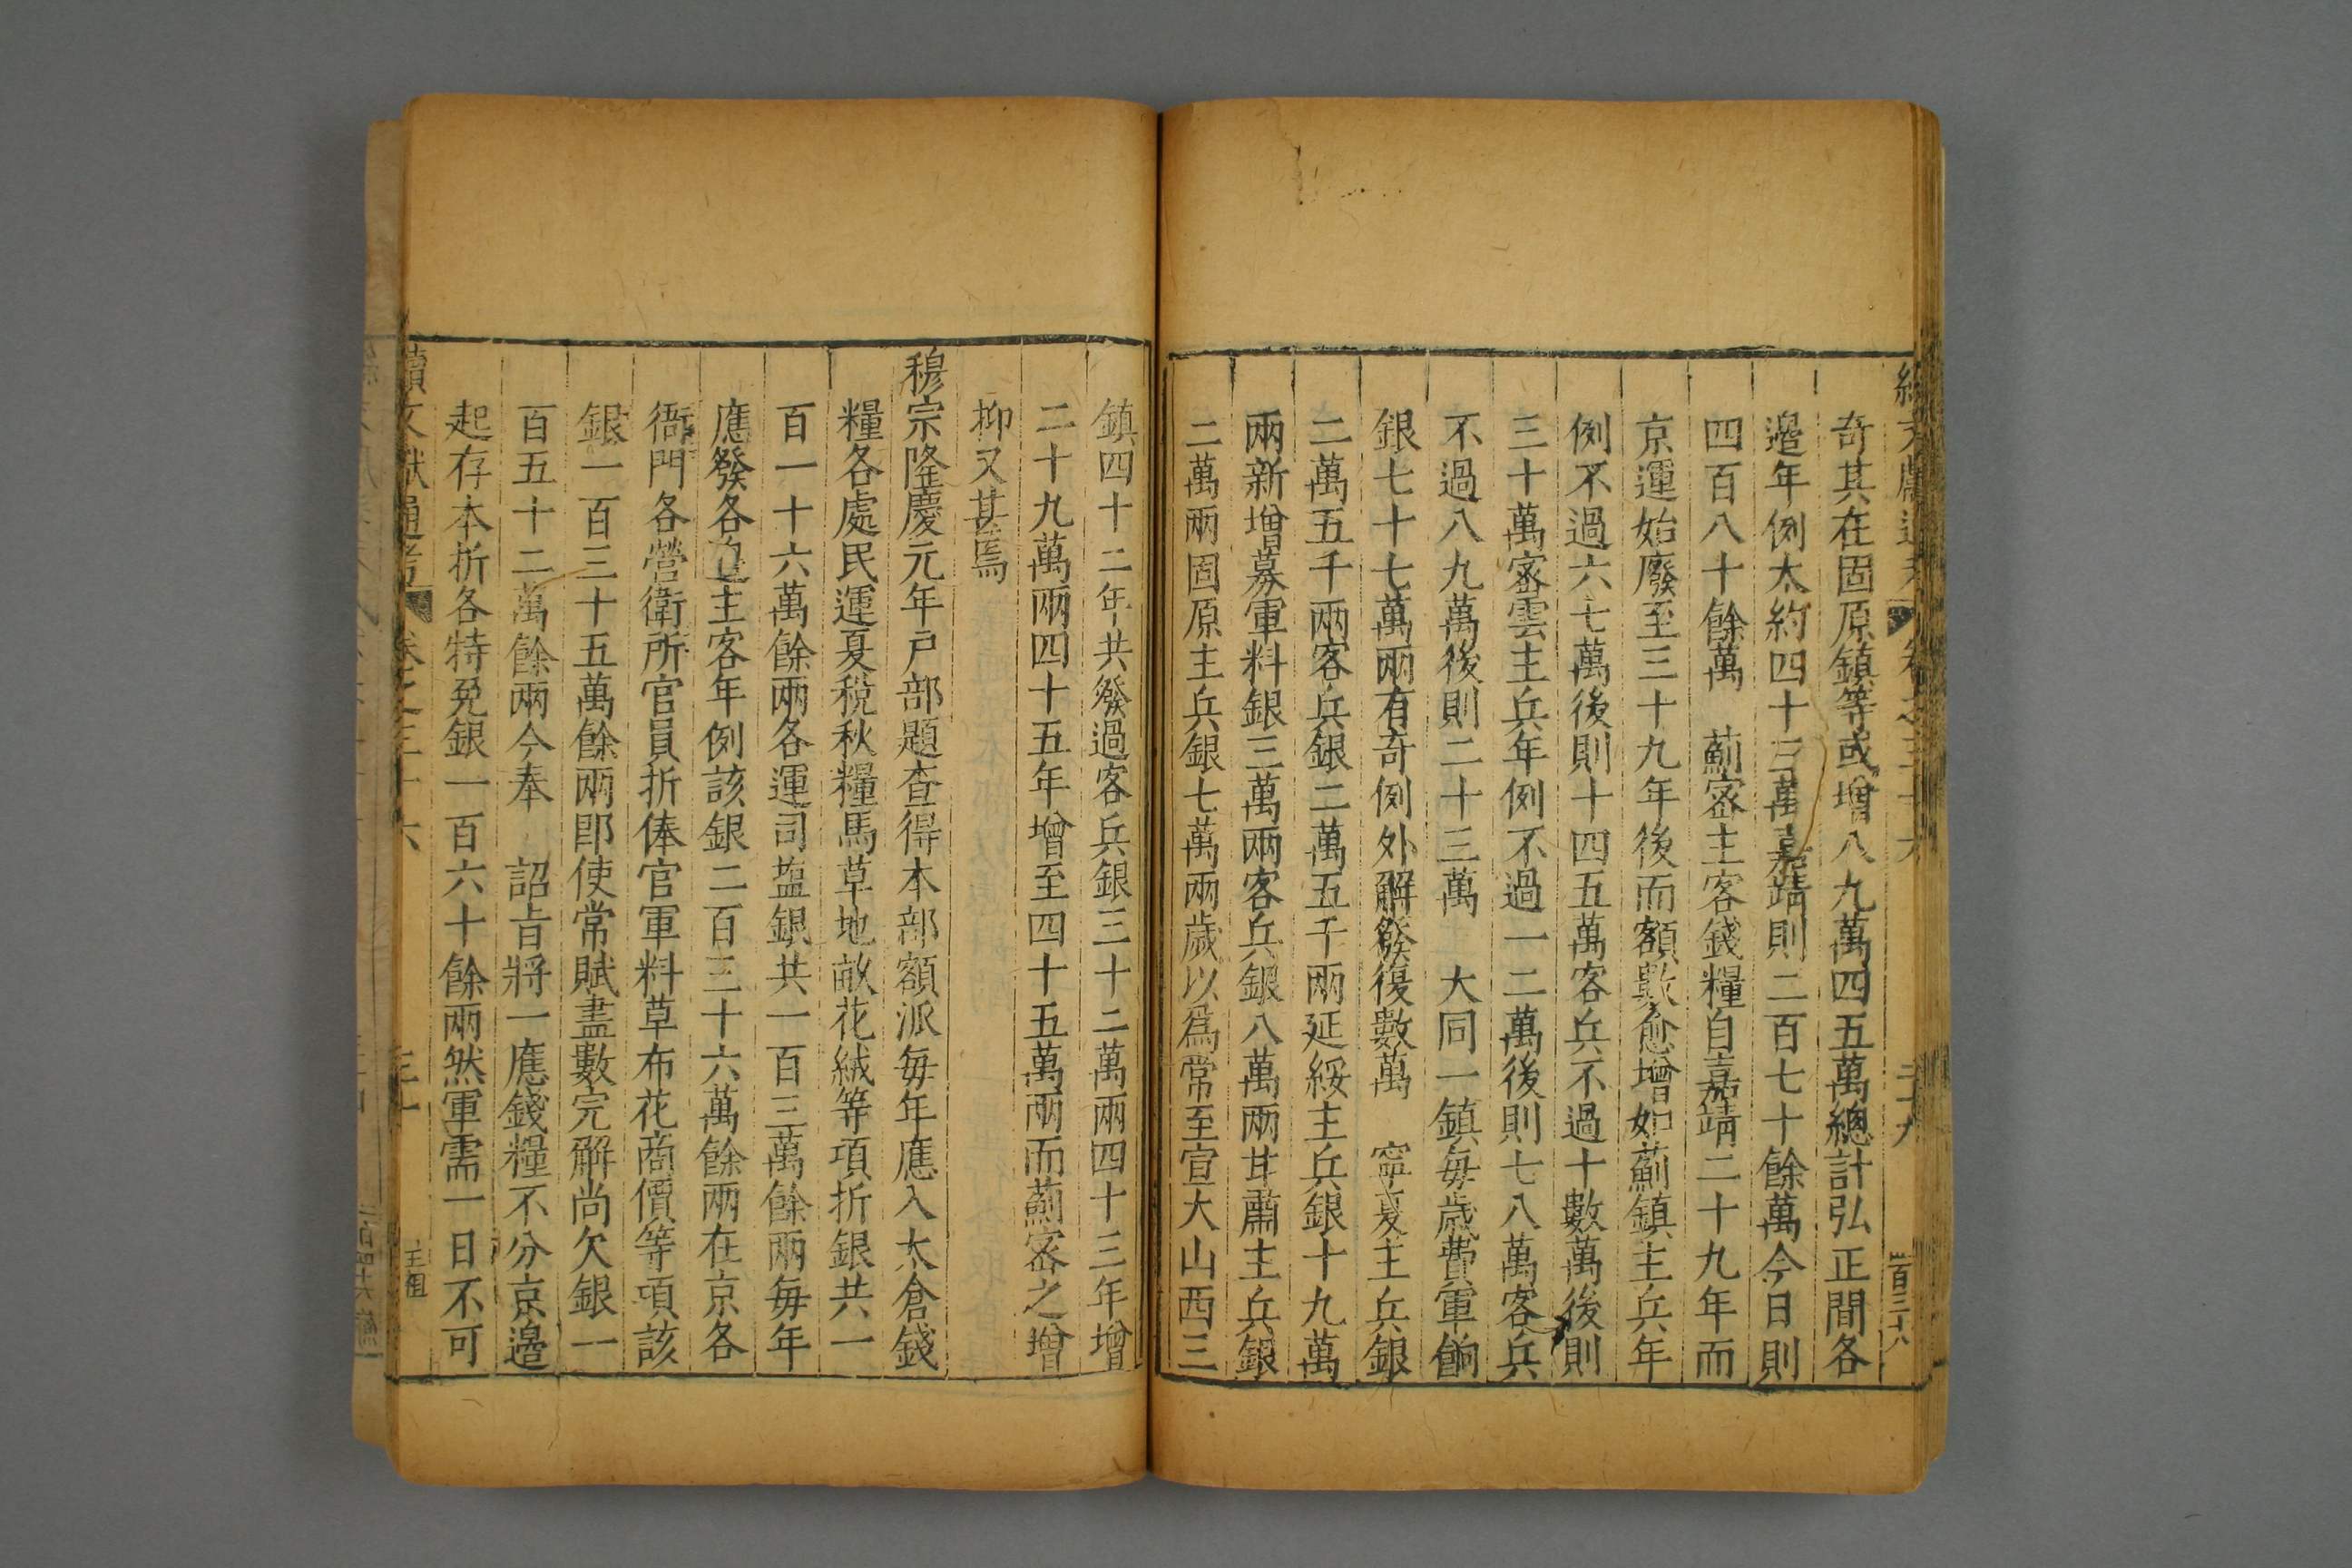 奇其在固原鎮等或增八九萬四五萬總計弘正間各
邊年例大約四十三萬嘉靖則二百七十餘萬今日則
四百八十餘萬　薊密主客錢糧自嘉靖二十九年而
京運始廢至三十九年後而額數愈增如薊鎮主兵年
例不過六七萬後則十四五萬客兵不過十數萬後則
三十萬密雲主兵年例不過一二萬後則七八萬客兵
不過八九萬後則二十三萬　大同一鎮每歲費軍餉
銀七十七萬兩有奇例外解發復數萬　寧夏主兵銀
二萬五千兩客兵銀二萬五千兩延綏主兵銀十九萬
兩新增募軍料銀三萬兩客兵銀八萬兩甘肅主兵銀
二萬兩固原主兵銀七萬兩歲以爲常至宣大山西三
鎮四十二年共發過客兵銀三十二萬兩四十三年增
二十九萬兩四十五年增至四十五萬兩而薊密之增
抑又甚焉
穆宗隆慶元年戶部題查得本部額派每年應入太倉錢
糧各處民運夏稅秋糧馬草地畝花絨等項折銀共一
百一十六萬餘兩各運司塩銀共一百三萬餘兩每年
應發各邊主客年例該銀二百三十六萬餘兩在京各
衙門各營衛所官員折俸官軍料草布花商價等項該
銀一百三十五萬餘兩即使常賦盡數完解尚欠銀一
百五十二萬餘兩今奉　詔旨將一應錢糧不分京邊
起存本折各特免銀一百六十餘兩然軍需一日不可
續文獻通考　卷之三十六